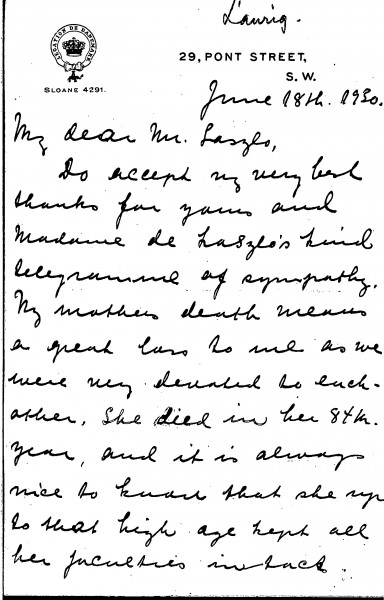 Lauvig.
LEGATION DE DANEMARK
SLOANE 4291.
29, PONT STREET,
S. W.
June 18th. 1930.
My dear Mr. Laszlo,
Do accept my very best
thanks for yours and
Madame de Laszlo's kind
telegramme of sympathy.
My mothers death means
a great loss to me as we
were very devoted to each-
other. She died in her 84th.
year, and it is always
nice to know that she up
to that high age kept all
her faculties intact.